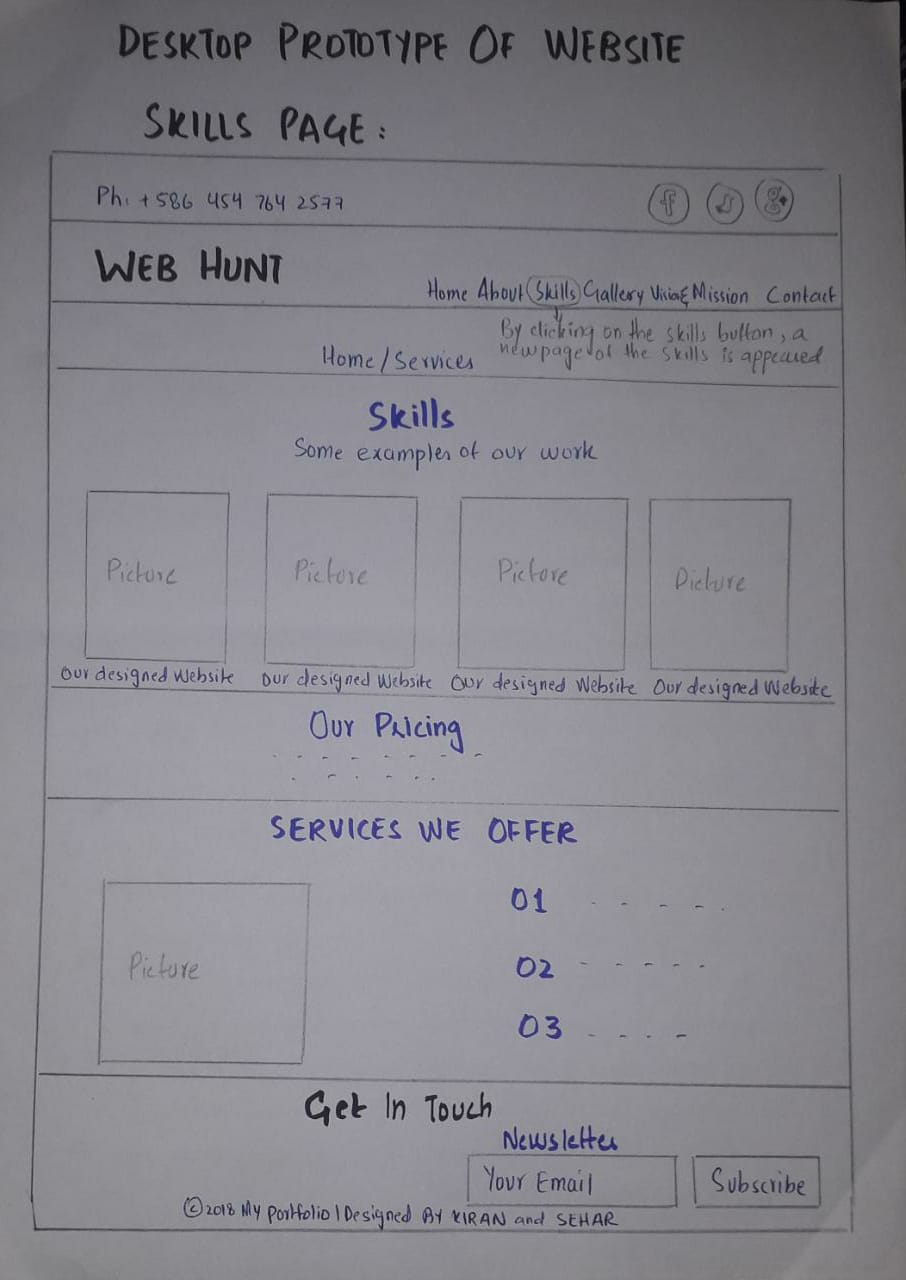 DESKTOP PROTOTYPE OF WEBSITE
SKILLS PAGE:
Ph. +586 454 764 2577
f g+
WEB HUNT
Home About Skills Gallery Vision& Mission Contact
By clicking on the skills button, a
new page of the skills is appeared
Home/Services
Skills
Some examples of our work
Picture Picture Picture Picture
Our designed Website Our designed Website Our designed Website Our designed Website
Our Pricing
SERVICES WE OFFER
01
02
03
Picture
Get In Touch
Newsletter
Your Email Subscribe
©2018 My Portfolio | Designed By KIRAN and SEHAR